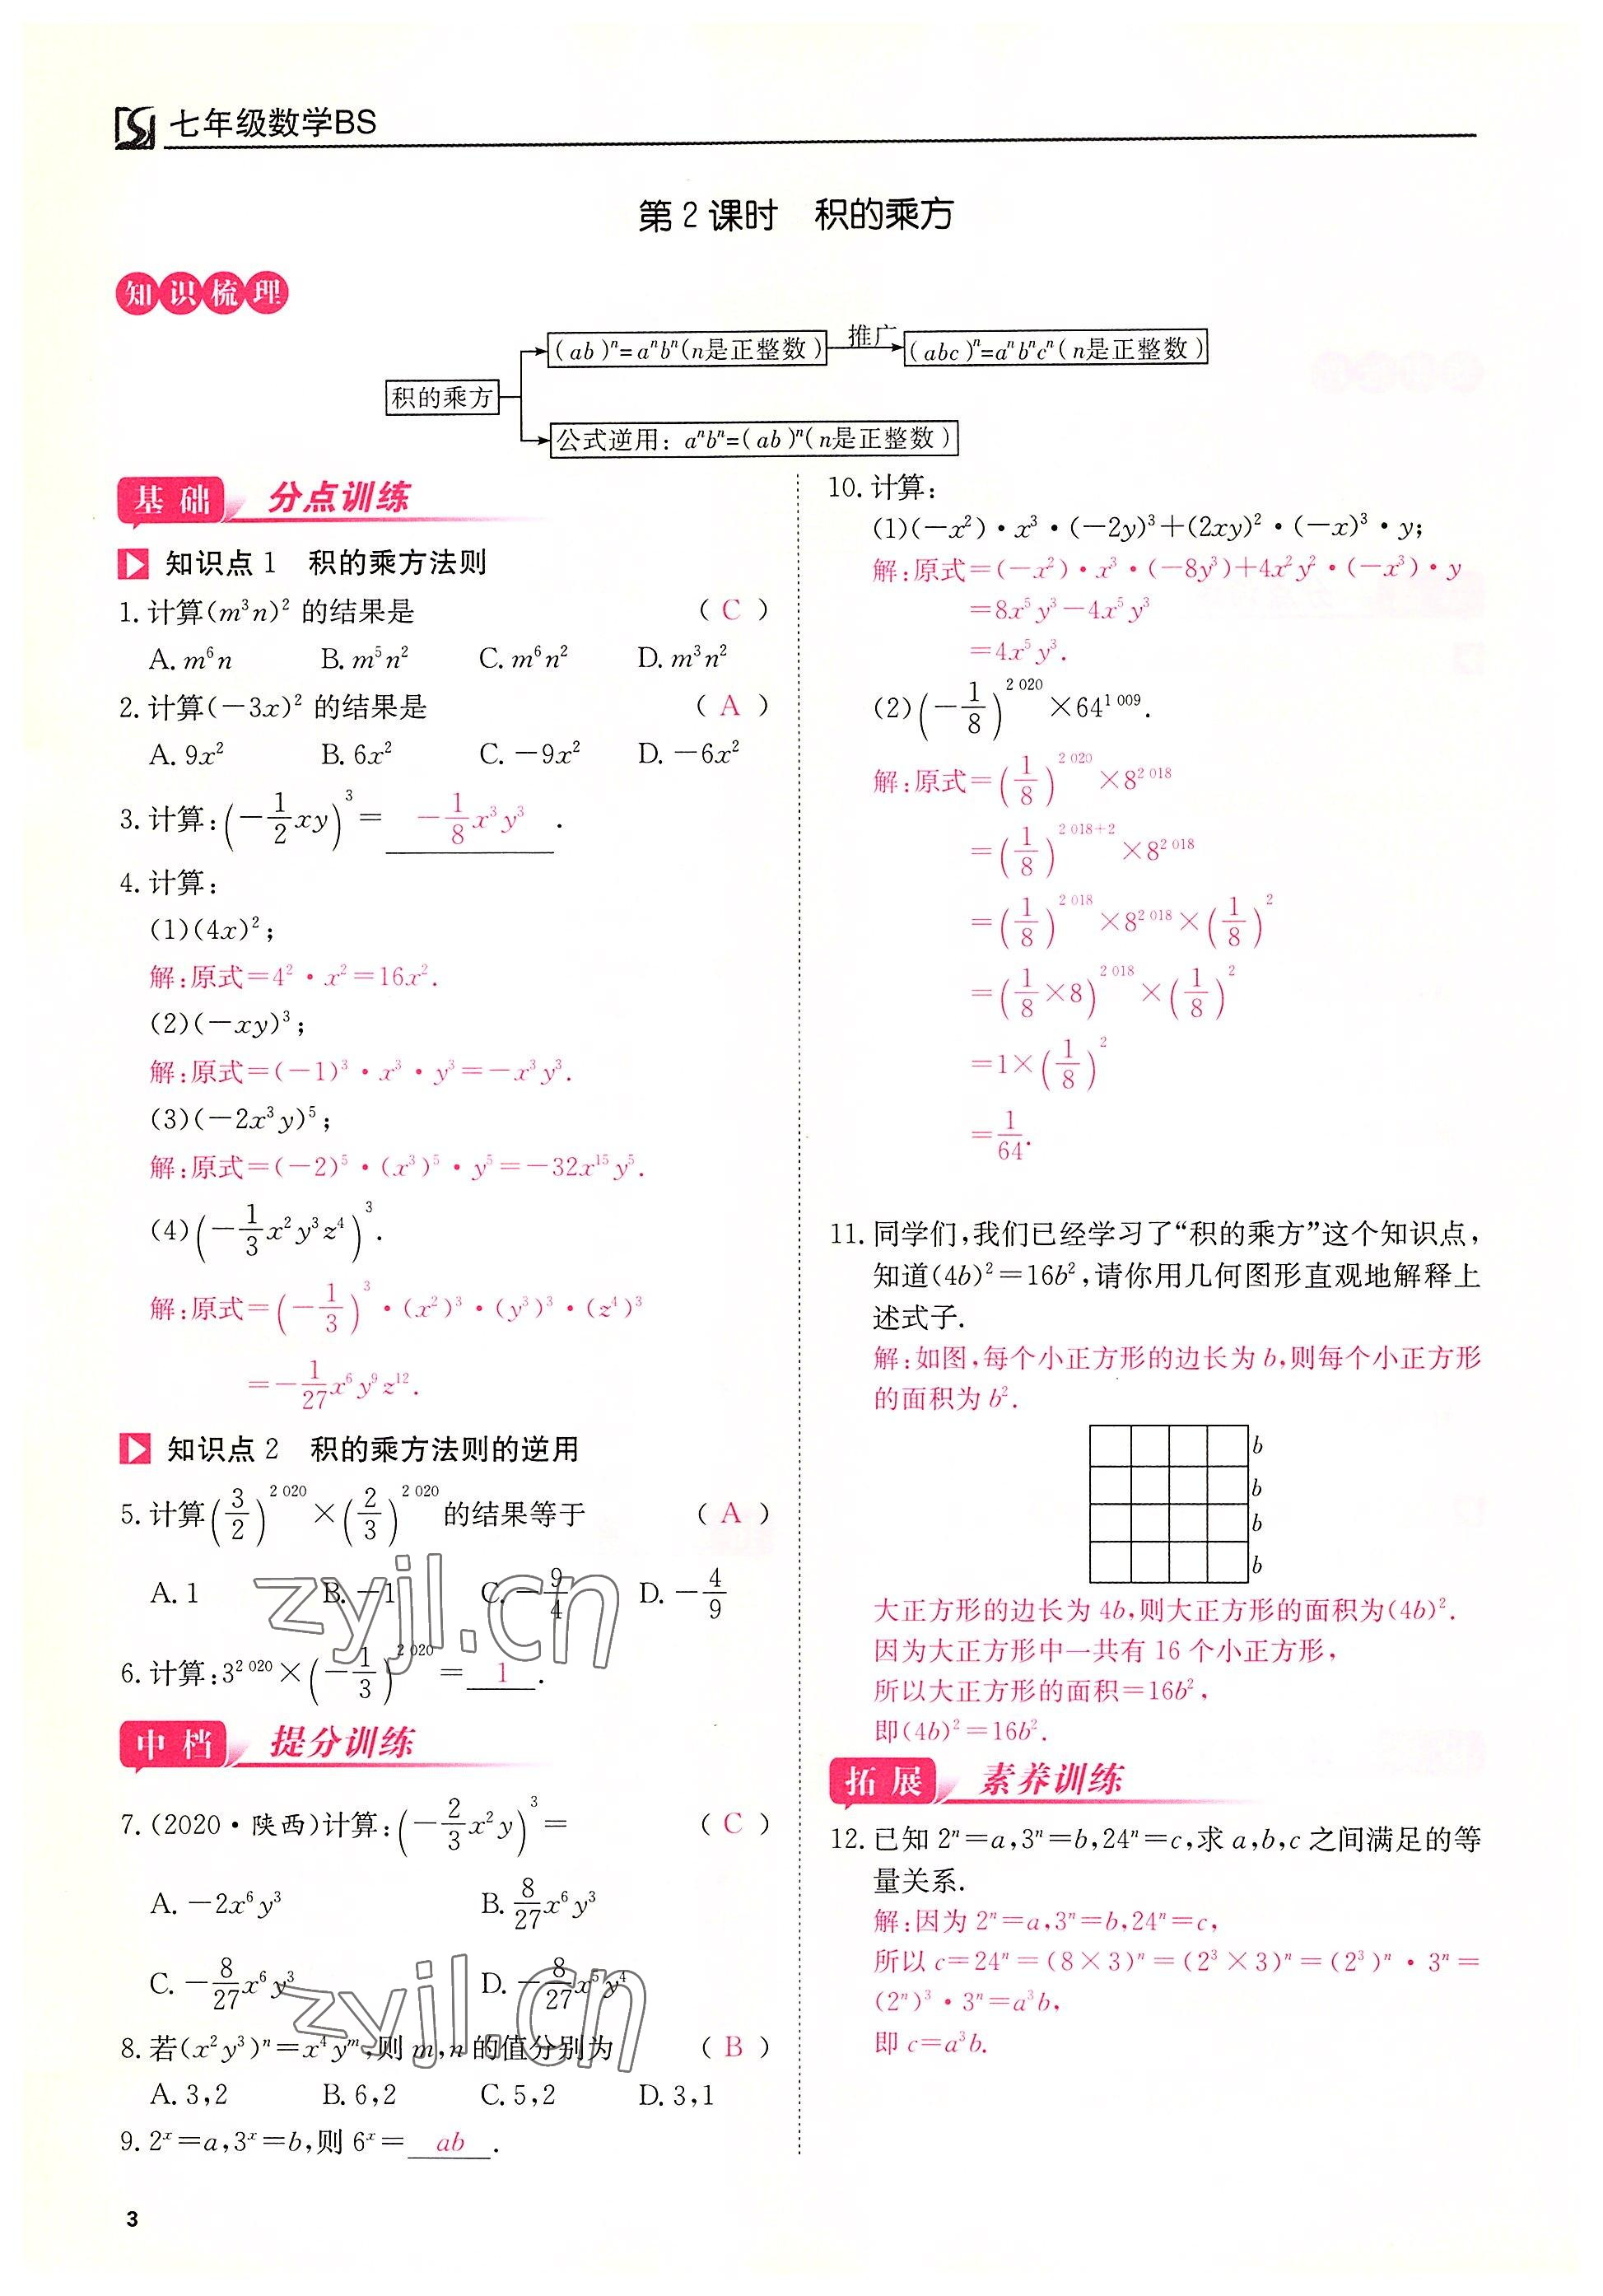 七年级数学BS
第2课时　积的乘方
知识梳理
积的乘方
(ab)ⁿ=aⁿbⁿ(n是正整数)
推广
(abc)ⁿ=aⁿbⁿcⁿ(n是正整数)
公式逆用：aⁿbⁿ=(ab)ⁿ(n是正整数)
基础　分点训练
知识点1　积的乘方法则
1. 计算(m³n)² 的结果是 （ C ）
A. m⁶n　B. m⁵n²　C. m⁶n²　D. m³n²
2. 计算(－3x)² 的结果是 （ A ）
A. 9x²　B. 6x²　C. －9x²　D. －6x²
3. 计算：(－1/2xy)³＝ －1/8x³y³ .
4. 计算：
(1)(4x)²；
解：原式＝4²・x²＝16x².
(2)(－xy)³；
解：原式＝(－1)³・x³・y³＝－x³y³.
(3)(－2x³y)⁵；
解：原式＝(－2)⁵・(x³)⁵・y⁵＝－32x¹⁵y⁵.
(4)(－1/3x²y³z⁴)³.
解：原式＝(－1/3)³・(x²)³・(y³)³・(z⁴)³
＝－1/27x⁶y⁹z¹².
知识点2　积的乘方法则的逆用
5. 计算(3/2)^2 020×(2/3)^2 020的结果等于 （ A ）
A. 1　B. －1　C. －9/4　D. －4/9
6. 计算：3^2 020×(－1/3)^2 020＝ 1 .
中档　提分训练
7. (2020・陕西)计算：(－2/3x²y)³＝ （ C ）
A. －2x⁶y³　B. 8/27x⁶y³
C. －8/27x⁶y³　D. －8/27x⁵y⁴
8. 若(x²y³)ⁿ＝x⁴yᵐ，则 m，n 的值分别为 （ B ）
A. 3，2　B. 6，2　C. 5，2　D. 3，1
9. 2ˣ＝a，3ˣ＝b，则 6ˣ＝ ab .
10. 计算：
(1)(－x²)・x³・(－2y)³＋(2xy)²・(－x)³・y；
解：原式＝(－x²)・x³・(－8y³)＋4x²y²・(－x³)・y
＝8x⁵y³－4x⁵y³
＝4x⁵y³.
(2)(－1/8)^2 020×64^1 009.
解：原式＝(1/8)^2 020×8^2 018
＝(1/8)^2 018+2×8^2 018
＝(1/8)^2 018×8^2 018×(1/8)²
＝(1/8×8)^2 018×(1/8)²
＝1×(1/8)²
＝1/64.
11. 同学们，我们已经学习了“积的乘方”这个知识点，
知道(4b)²＝16b²，请你用几何图形直观地解释上
述式子.
解：如图，每个小正方形的边长为 b，则每个小正方形
的面积为 b².
b
b
b
b
大正方形的边长为 4b，则大正方形的面积为(4b)².
因为大正方形中一共有 16 个小正方形，
所以大正方形的面积＝16b²，
即(4b)²＝16b².
拓展　素养训练
12. 已知 2ⁿ＝a，3ⁿ＝b，24ⁿ＝c，求 a，b，c 之间满足的等
量关系.
解：因为 2ⁿ＝a，3ⁿ＝b，24ⁿ＝c，
所以 c＝24ⁿ＝(8×3)ⁿ＝(2³×3)ⁿ＝(2³)ⁿ・3ⁿ＝
(2ⁿ)³・3ⁿ＝a³b，
即 c＝a³b.
zyjl.cn
zyjl.cn
3